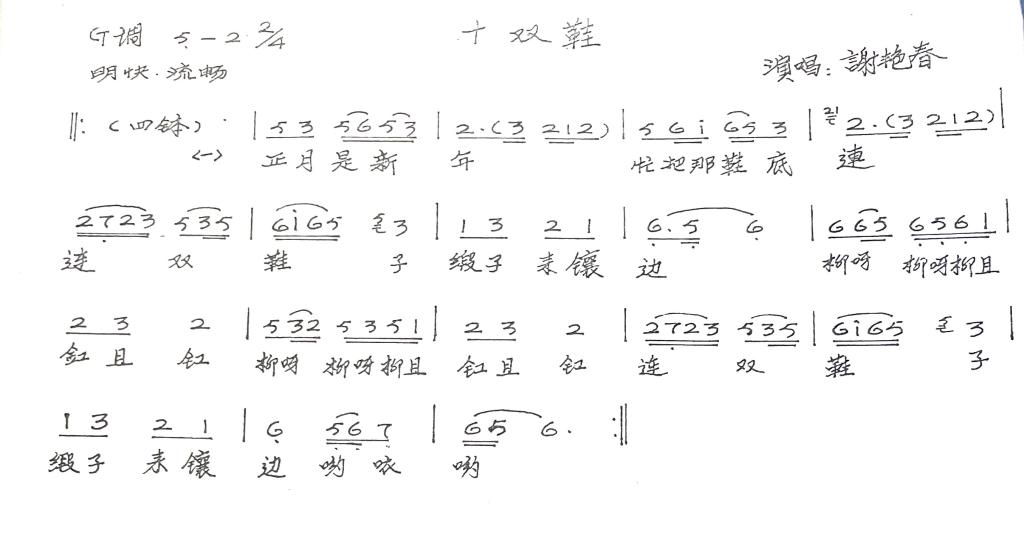 G调 5̣ — 2 2/4 十双鞋
明快·流畅 演唱：謝艳春
‖: (四钵) | 5 3 5653 | 2·(3 212) | 5 6i 65 3 | 21 2·(3 212) |
<一> 正月是新 年 忙把那鞋底 連
27̣23 535 | 6i65 3 | 1 3 2 1 | 6̣·5̣ 6̣ | 6 65 6̣5̣6̣1 |
連 双 鞋 子 缎子来镶 边 柳呀 柳呀柳且
2 3 2 | 5 32 5351 | 2 3 2 | 27̣23 535 | 6i65 3 |
釭且 釭 柳呀 柳呀柳且 釭且 釭 连 双 鞋 子
1 3 2 1 | 6̣ 5̣6̣ 7̣ | 6̣5̣ 6̣· :‖
缎子来镶 边 哟咳 哟